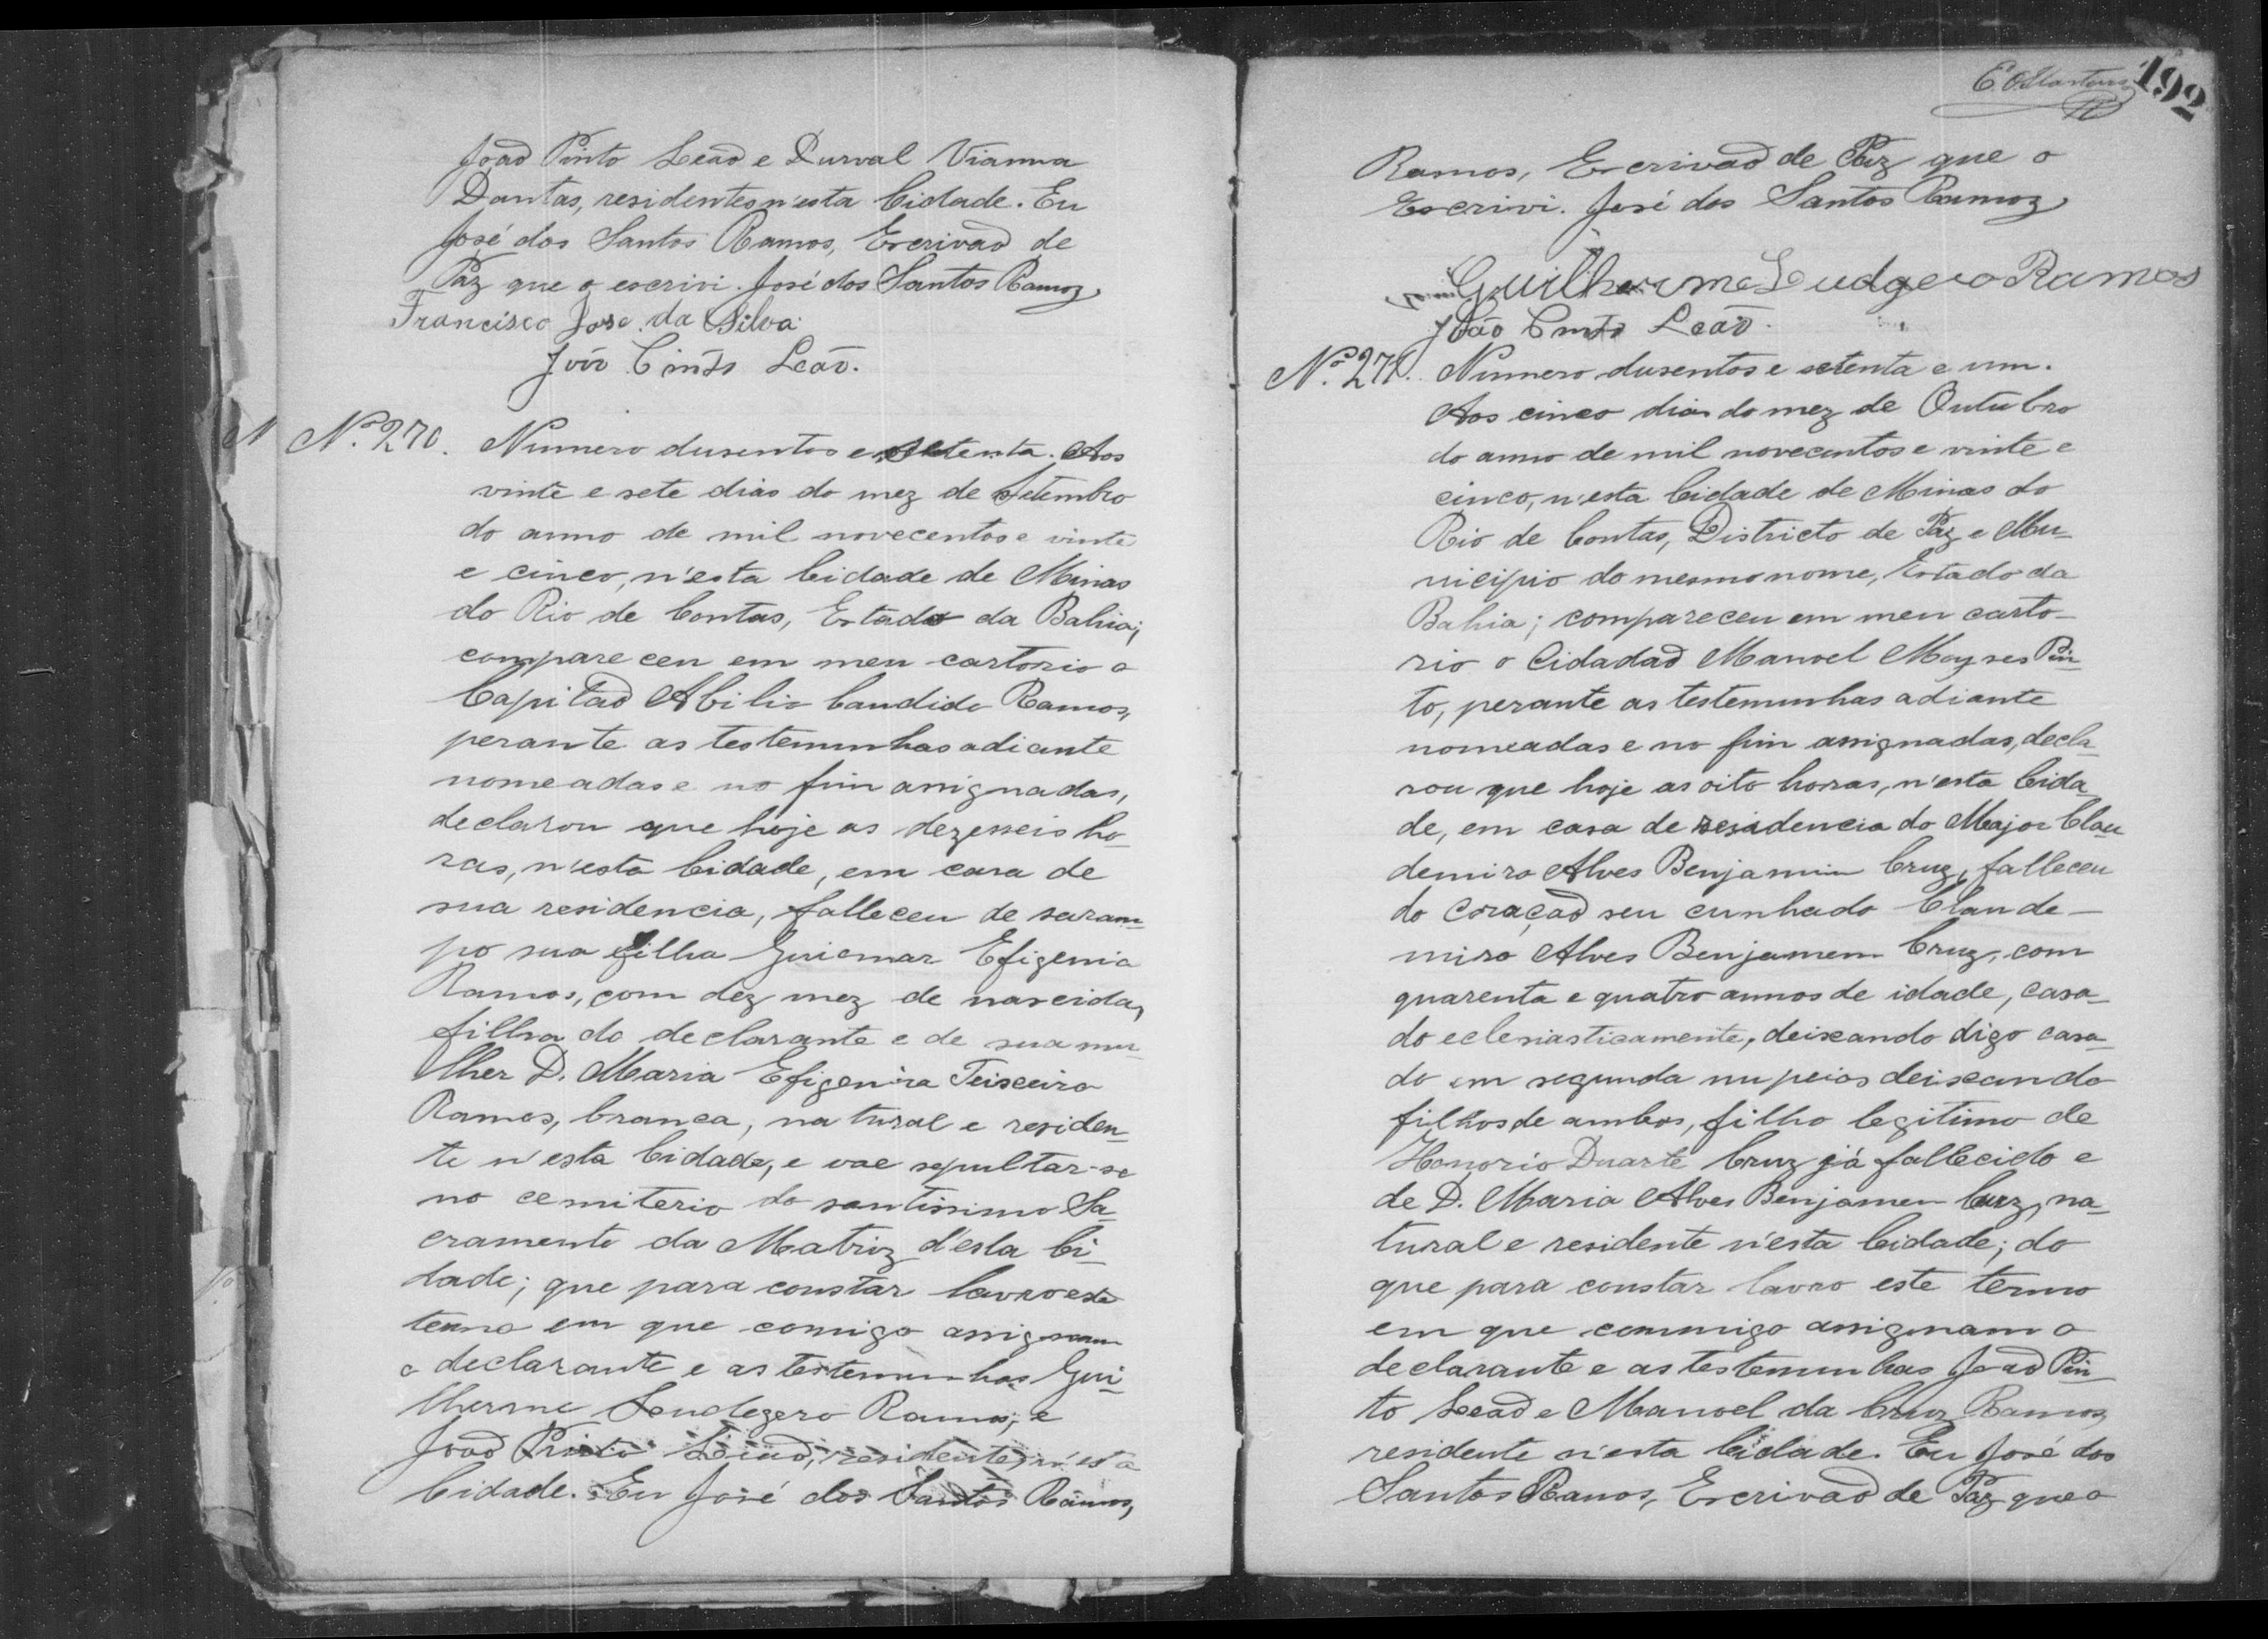 João Pinto Leão e Durval Vianna
Dantas, residentes n'esta Cidade. Eu
José dos Santos Ramos, Escrivão de
Paz que o escrivi. José dos Santos Ramos,
Francisco Jose da Silva
João Pinto Leão.
N Nº 270. Numero dusentos e setenta. Aos
vinte e sete dias do mez de Setembro
do anno de mil novecentos e vinte
e cinco, n'esta Cidade de Minas
do Rio de Contas, Estado da Bahia;
compareceu em meu cartorio o
Capitão Abilio Candido Ramos,
perante as testemunhas adiante
nomeadas e no fim assignadas,
declarou que hoje as dezesseis ho-
ras, n'esta Cidade, em casa de
sua residencia, falleceu de saram-
po sua filha Guiomar Efigenia
Ramos, com dez mez de nascida,
filha do declarante e de sua mu-
lher D. Maria Efigenia Teixeira
Ramos, branca, natural e residen-
te n'esta Cidade, e vae sepultar-se
no cemiterio do santissimo Sa-
cramento da Matriz d'esta Ci-
dade; que para constar lavro este
termo em que comigo assignam
o declarante e as testemunhas Gui-
lherme Leudegero Ramos, e
João Pinto Leão, residentes n'esta
Cidade. Eu José dos Santos Ramos,
E. O. Martins 192
Ramos, Escrivão de Paz que o
Escrivi. José dos Santos Ramos,
Guilherme Ludgero Ramos
João Pinto Leão.
Nº 271. Numero dusentos e setenta e um.
Aos cinco dias do mez de Outubro
do anno de mil novecentos e vinte e
cinco, n'esta Cidade de Minas do
Rio de Contas, Districto de Paz e Mu-
nicipio do mesmo nome, Estado da
Bahia; compareceu em meu carto-
rio o Cidadão Manoel Moyses Pin-
to, perante as testemunhas adiante
nomeadas e no fim assignadas, decla-
rou que hoje as oito horas, n'esta Cida-
de, em casa de residencia do Major Clau-
demiro Alves Benjamin Cruz, falleceu
do coração seu cunhado Claude-
miro Alves Benjamem Cruz, com
quarenta e quatro annos de idade, casa-
do eclesiasticamente, deixando digo casa-
do em segunda nupcias deixando
filhos de ambos, filho legitimo de
Honorio Duarte Cruz já fallecido e
de D. Maria Alves Benjamen Cruz, na-
tural e residente n'esta Cidade; do
que para constar lavro este termo
em que commigo assignam o
declarante e as testemunhas João Pin-
to Leão e Manoel da Cruz Ramos,
residente n'esta Cidade. Eu José dos
Santos Ramos, Escrivão de Paz que o